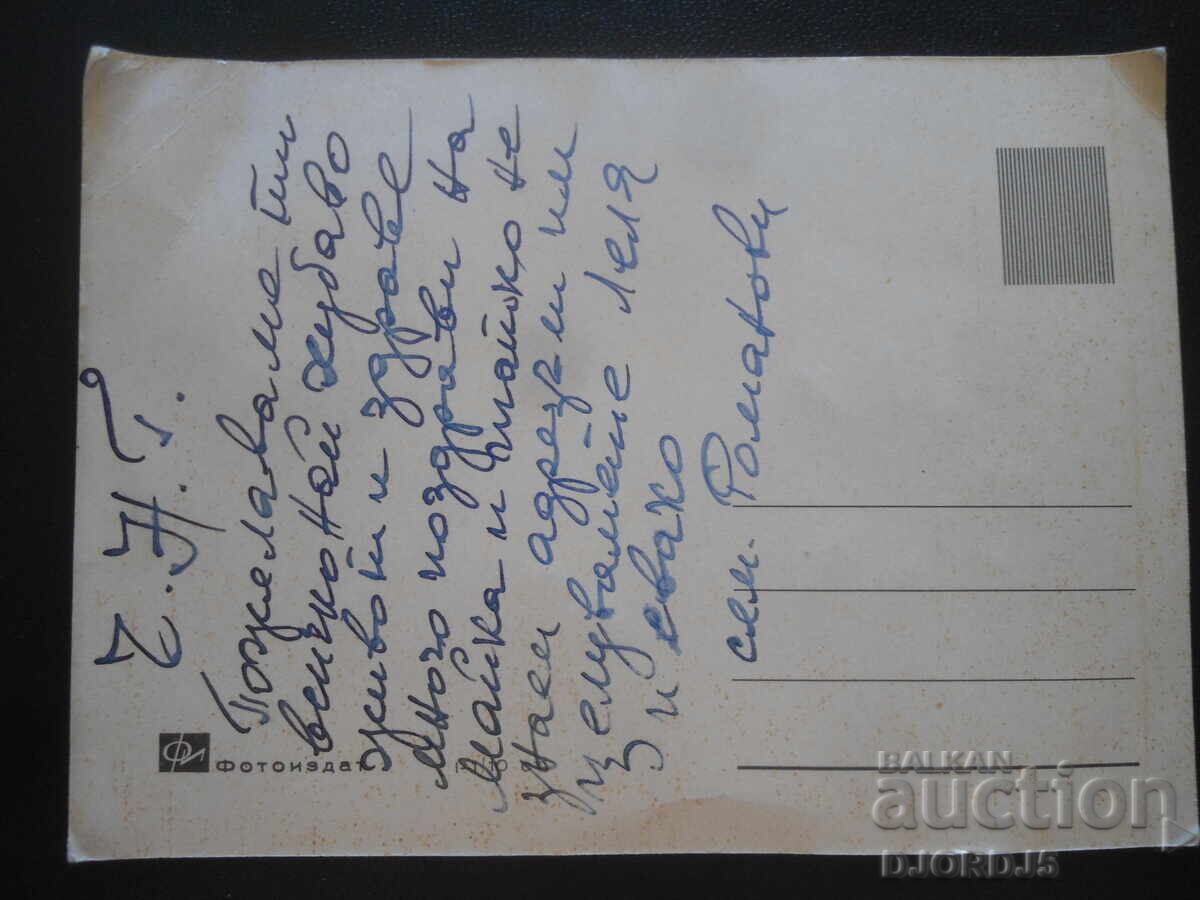 Ч.Н.Г.
Пожелаваме ти
всичко най хубаво
живот и здраве
много поздрави на
майка и татко не
знаем адрезли им
целуваме Леля
и свако
сем. Романови
Фотоиздат
BALKAN
auction
DJORDJ5